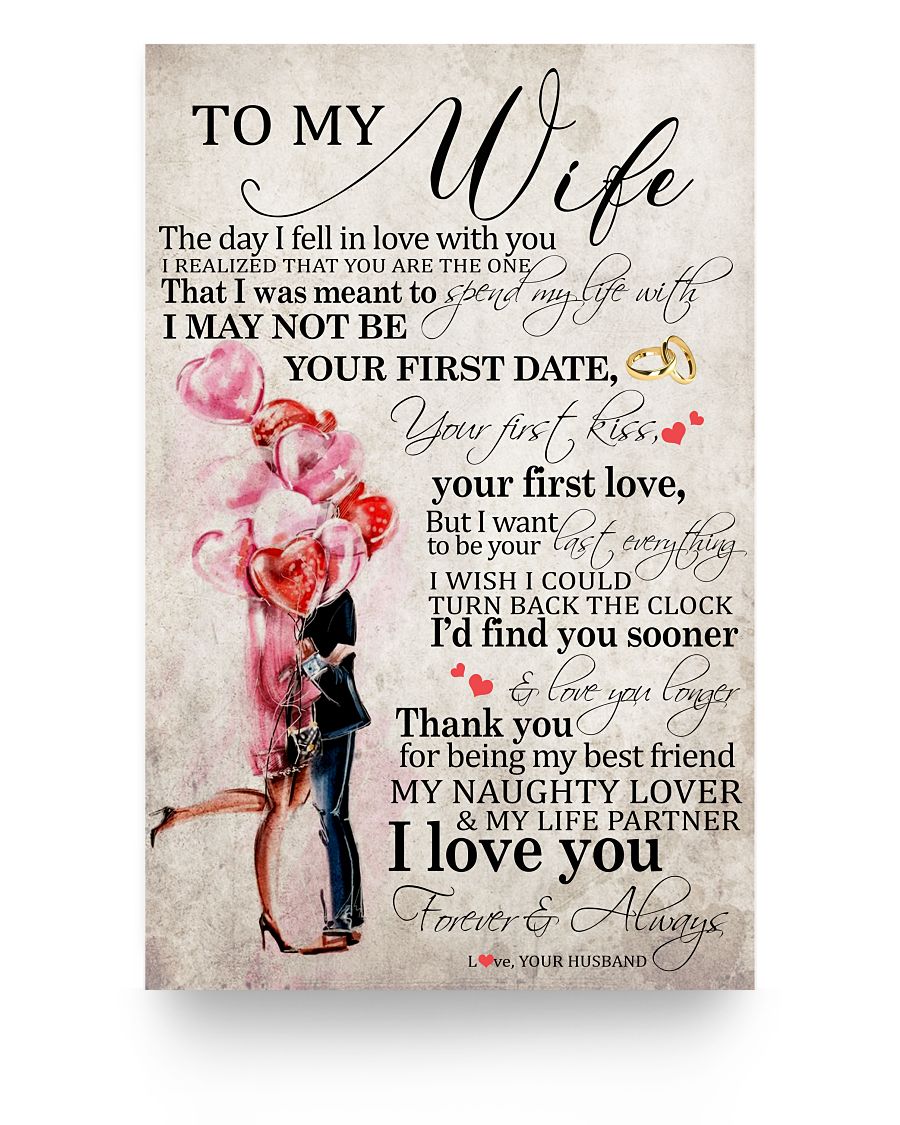 TO MY Wife
The day I fell in love with you
I REALIZED THAT YOU ARE THE ONE
That I was meant to spend my life with
I MAY NOT BE
YOUR FIRST DATE,
Your first kiss,
your first love,
But I want
to be your last everything
I WISH I COULD
TURN BACK THE CLOCK
I'd find you sooner
& love you longer
Thank you
for being my best friend
MY NAUGHTY LOVER
& MY LIFE PARTNER
I love you
Forever & Always
L❤ve, YOUR HUSBAND